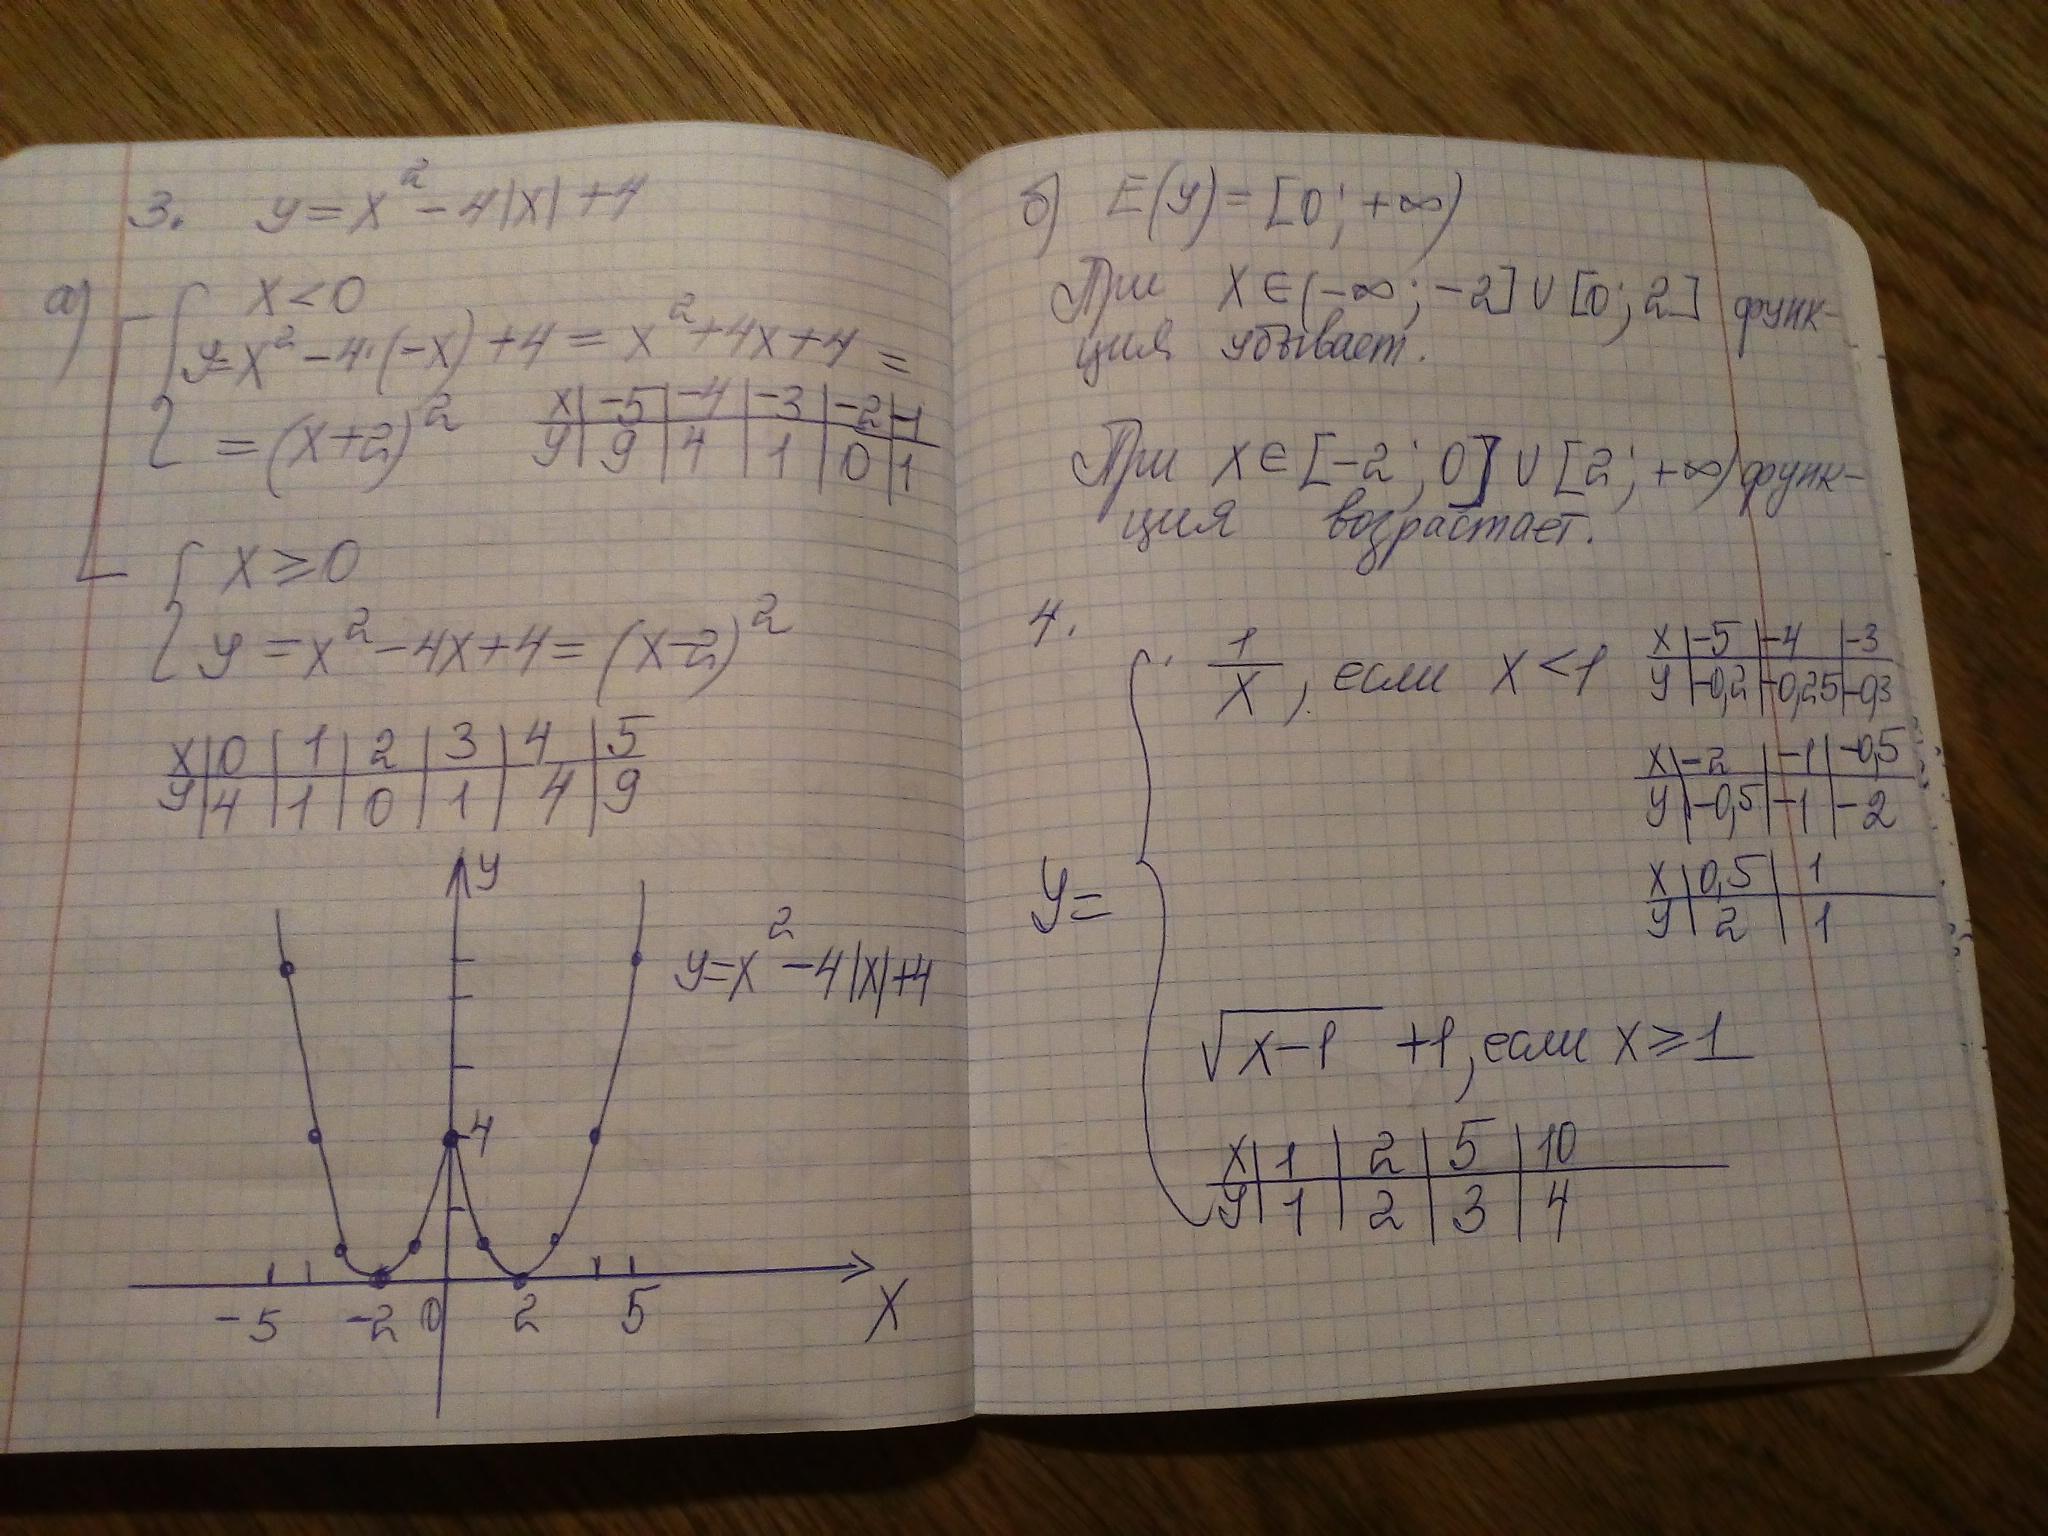 3. y = x² - 4|x| + 4
а) x < 0
y = x² - 4·(-x) + 4 = x² + 4x + 4 =
= (x+2)²
x | -5 | -4 | -3 | -2 | -1
y | 9 | 4 | 1 | 0 | 1
x ≥ 0
y = x² - 4x + 4 = (x-2)²
x | 0 | 1 | 2 | 3 | 4 | 5
y | 4 | 1 | 0 | 1 | 4 | 9
y
y = x² - 4|x| + 4
4
-5 -2 0 2 5 x
б) E(y) = [0; +∞)
При x ∈ (-∞; -2] ∪ [0; 2] функ-
ция убывает.
При x ∈ [-2; 0] ∪ [2; +∞) функ-
ция возрастает.
4.
y =
1/x, если x < 1
x | -5 | -4 | -3
y | -0,2 | -0,25 | -0,3
x | -2 | -1 | -0,5
y | -0,5 | -1 | -2
x | 0,5 | 1
y | 2 | 1
√(x-1) + 1, если x ≥ 1
x | 1 | 2 | 5 | 10
y | 1 | 2 | 3 | 4